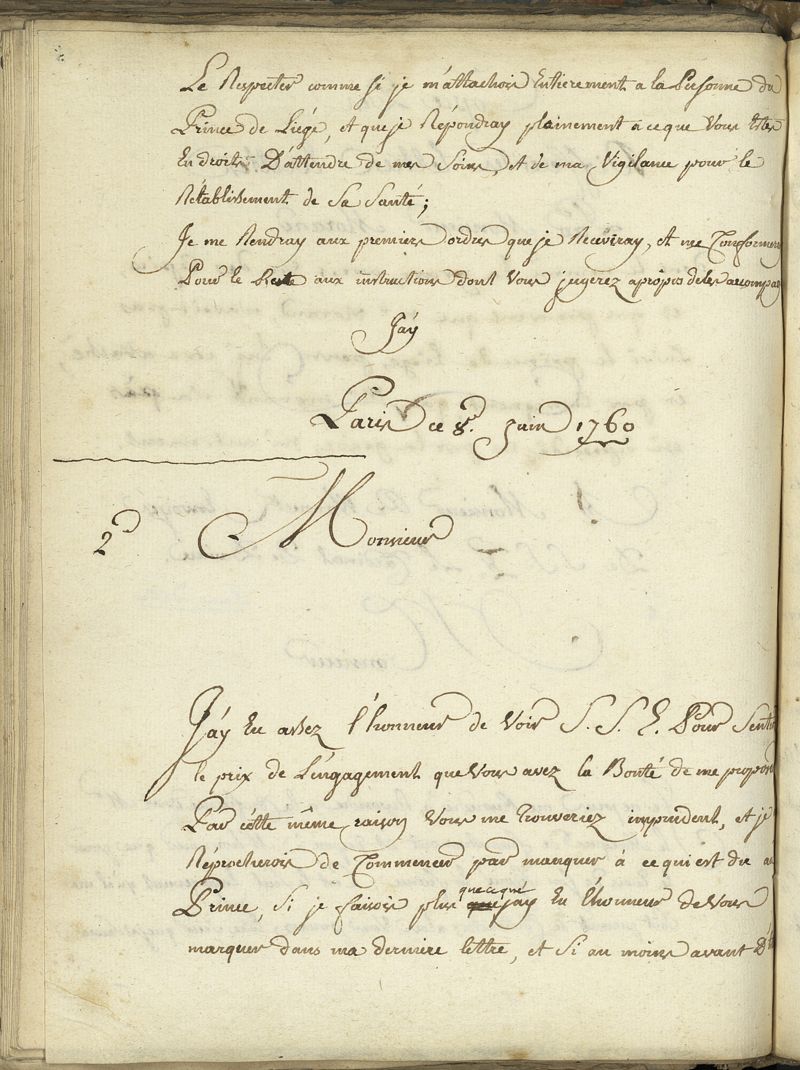 Le Respecter comme si je m'attachois Entierement a la Personne du
Prince de Liége, et que je Répondray pleinement a ce que Vous êtes
En droits D'attendre de mes Soins, et de ma Vigilance pour le
Rétablissement de Sa Santé;
Je me Rendray aux premiers ordres que je Recevray, et me Conformeray
Pour le Reste aux instructions dont Vous jugerez apropos de les accompag
J'áy
Paris ce 8.e Juin 1760
2.e Monsieur
J'áy Eu assez l'honneur de Voir S. S. E. Pour Sentir
le prix de L'engagement que Vous avez la Bonté de me propos
Par cette même raison Vous me trouveriez imprudent, et je
Réprocherois de Commencer par manquer à ce qui est du au
Prince, Si je faisois plus que ce que j'ay Eu l'honneur de Vous
marquer dans ma derniere lettre, et Si au moins avant